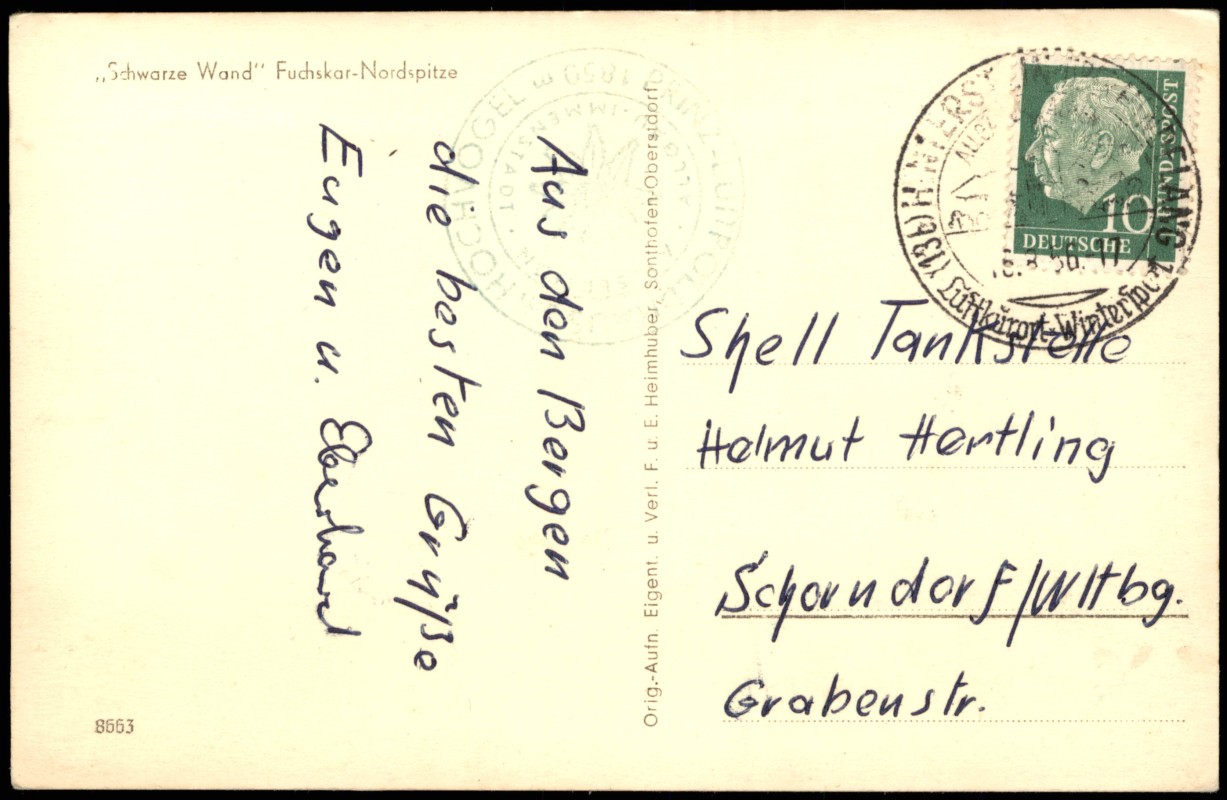 „Schwarze Wand" Fuchskar-Nordspitze
Aus den Bergen
die besten Grüße
Eugen u. Eberhard
8663
Orig.-Aufn. Eigent. u. Verl. F. u. E. Heimhuber, Sonthofen-Oberstdorf
HOCHVOGEL
1850
IMMENSTADT
(13b)
Luftkurort-Wintersport
56.-17
10
DEUTSCHE
BUNDESPOST
Shell Tankstelle
Helmut Hertling
Schorndorf/Wttbg.
Grabenstr.